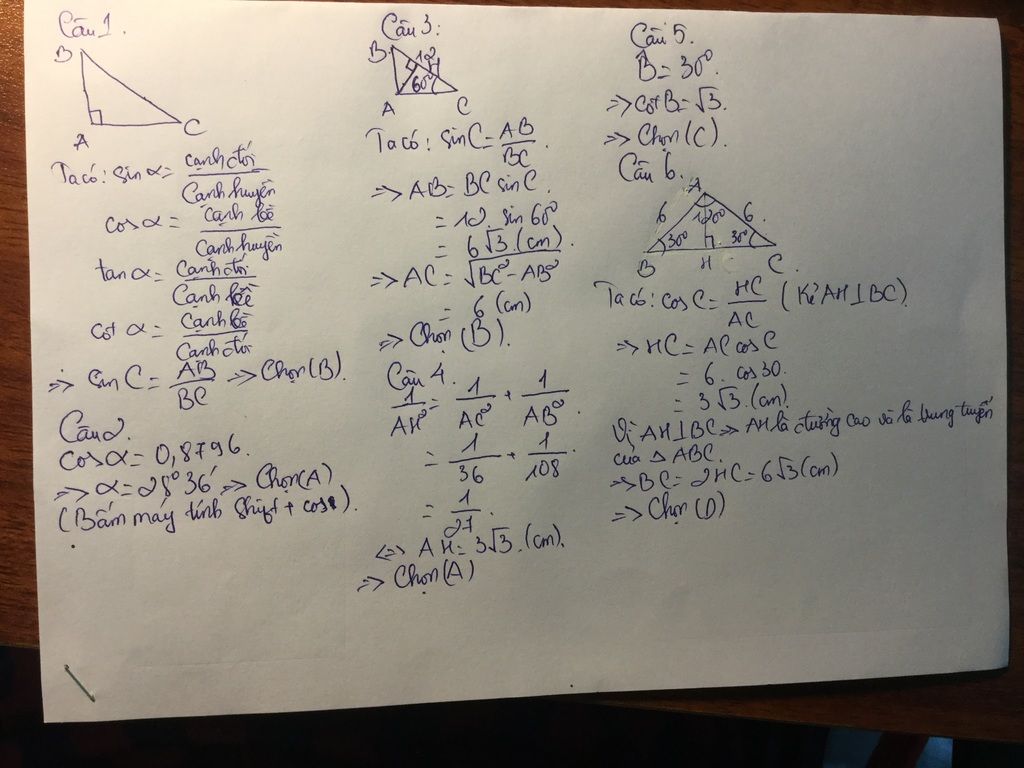 Câu 1.
B
A
C
Ta có: sin α = cạnh đối / cạnh huyền
cos α = cạnh kề / cạnh huyền
tan α = cạnh đối / cạnh kề
cot α = cạnh kề / cạnh đối
=> sin C = AB / BC => Chọn (B).
Câu 2.
cos α = 0,8796.
=> α = 28° 36' => Chọn (A)
(Bấm máy tính Shift + cos).
Câu 3:
B
12
60°
A
C
Ta có: sin C = AB / BC.
=> AB = BC sin C.
= 12 sin 60°
= 6√3 (cm).
=> AC = √(BC² - AB²)
= 6 (cm)
=> Chọn (B).
Câu 4.
1 / AH² = 1 / AC² + 1 / AB².
= 1 / 36 + 1 / 108.
= 1 / 27.
<=> AH = 3√3 (cm).
=> Chọn (A)
Câu 5.
B̂ = 30°.
=> cot B = √3.
=> Chọn (C).
Câu 6.
A
6
120°
6
30°
30°
B
H
C
Ta có: cos C = HC / AC (Kẻ AH ⊥ BC).
=> HC = AC cos C
= 6. cos 30.
= 3√3 (cm)
Vì AH ⊥ BC => AH là đường cao và là trung tuyến
của Δ ABC.
=> BC = 2HC = 6√3 (cm)
=> Chọn (D)